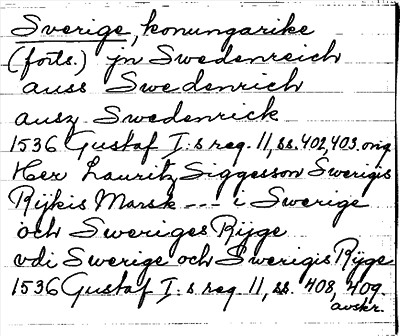 Sverige, konungarike
(forts.) jn Swedenreich
auss Swedenrich
ausz Swedenrick
1536 Gustaf I:s reg. 11, ss. 402, 403. orig.
Her Lauritz Siggesson Swerigis
Rijkis Marsk --- i Swerige
och Sweriges Rijge
vdi Swerige och Swerigis Rijge
1536 Gustaf I:s reg 11, ss. 408, 409.
avskr.